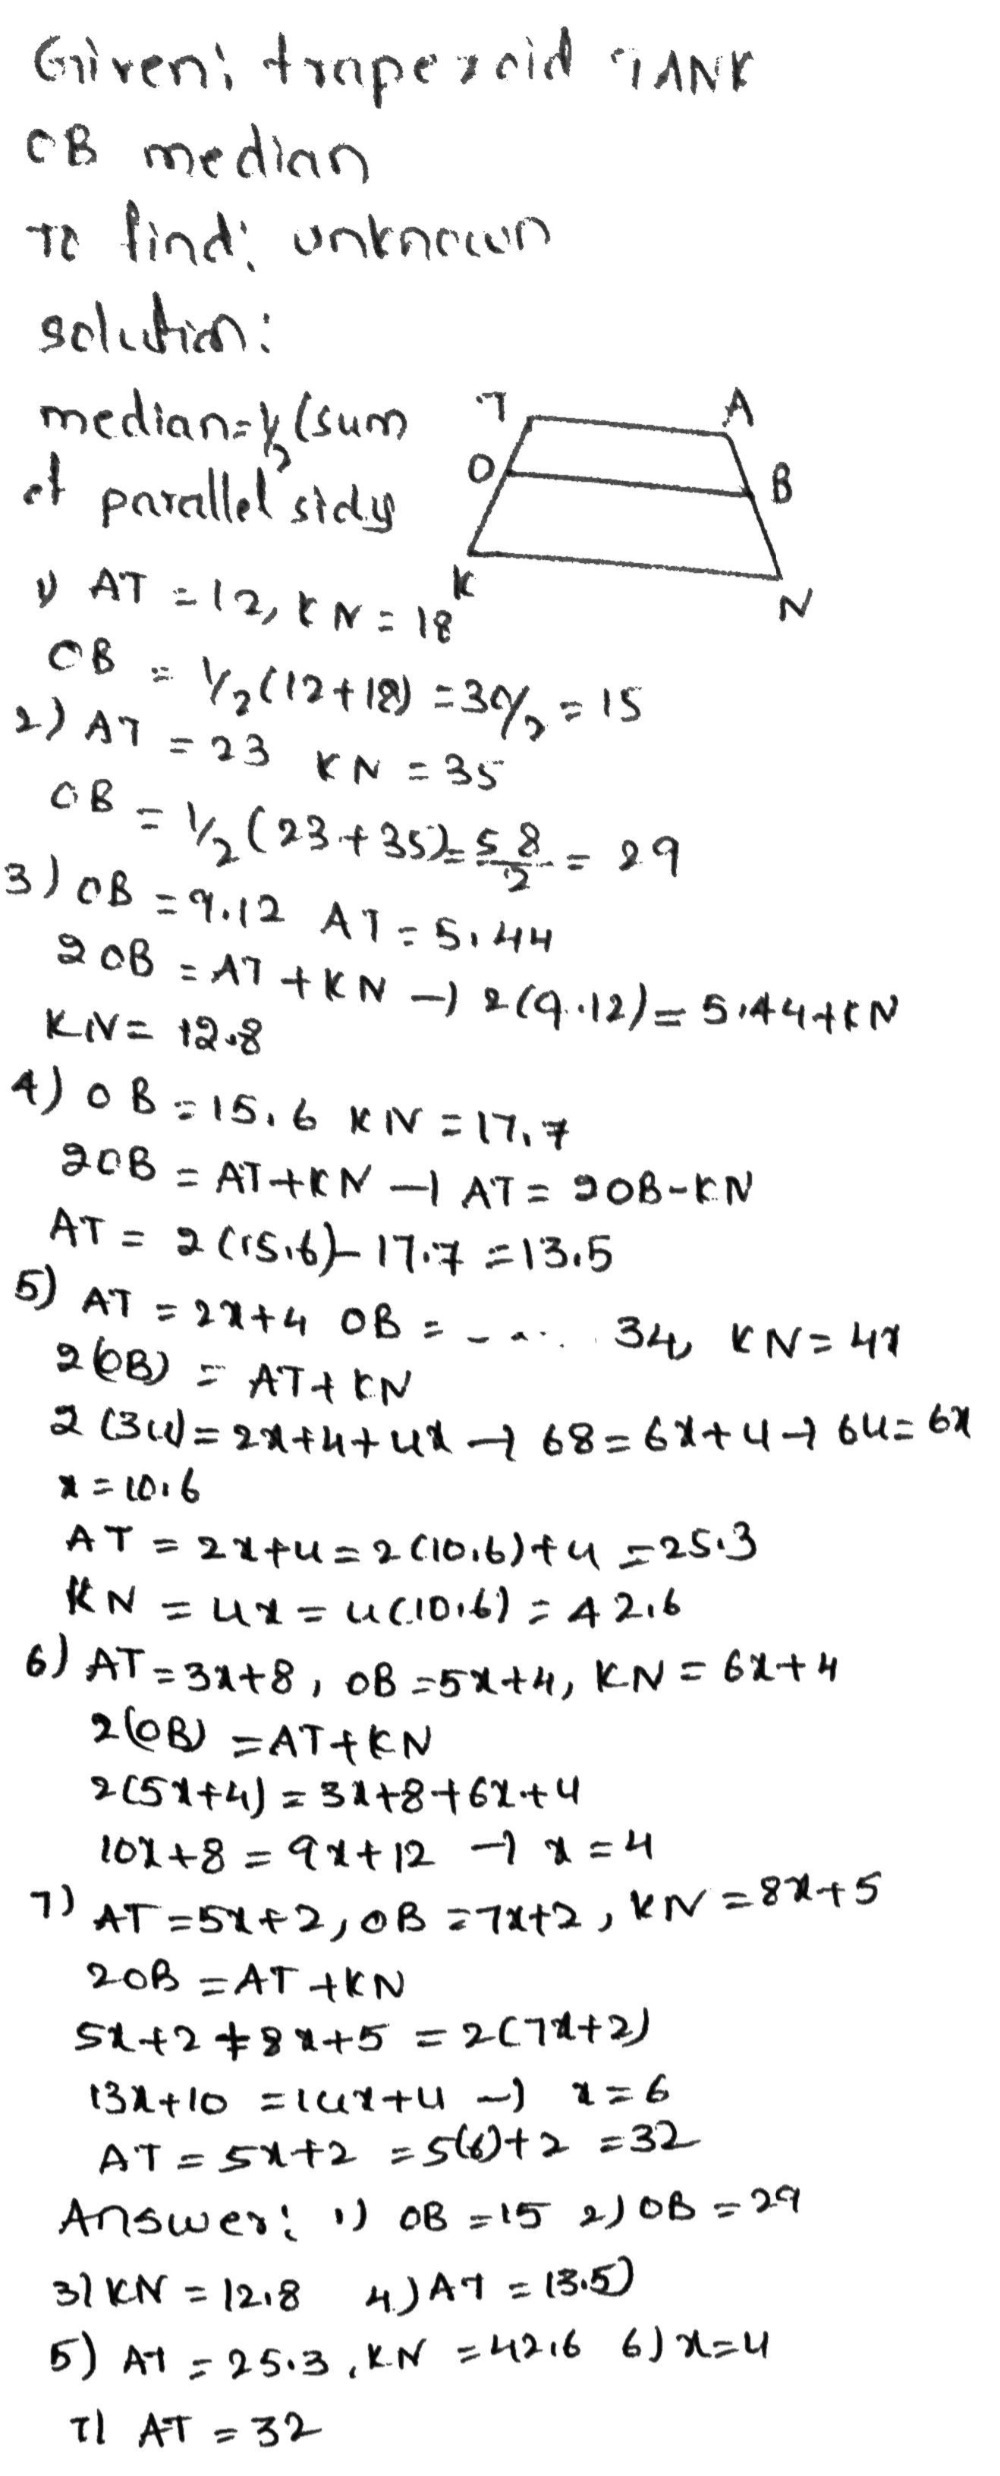 Given: trapezoid TANK
OB median
To find: unknown
solution:
median=½(sum
of parallel sidy
T
A
O
B
K
N
1) AT = 12, KN = 18
OB = 1/2(12+18) = 30/2 = 15
2) AT = 23 KN = 35
OB = 1/2 (23+35) = 58/2 = 29
3) OB = 9.12 AT = 5.44
2OB = AT + KN → 2(9.12) = 5.44+KN
KN = 12.8
4) OB = 15.6 KN = 17.7
2OB = AT+KN → AT = 2OB-KN
AT = 2(15.6)-17.7 = 13.5
5) AT = 2x+4 OB = - - .. . 34, KN = 4x
2(OB) = AT+KN
2(34) = 2x+4+4x → 68 = 6x+4 → 64 = 6x
x = 10.6
AT = 2x+4 = 2(10.6)+4 = 25.3
KN = 4x = 4(10.6) = 42.6
6) AT = 3x+8, OB = 5x+4, KN = 6x+4
2(OB) = AT+KN
2(5x+4) = 3x+8+6x+4
10x+8 = 9x+12 → x = 4
7) AT = 5x+2, OB = 7x+2, KN = 8x+5
2OB = AT+KN
5x+2+8x+5 = 2(7x+2)
13x+10 = 14x+4 → x = 6
AT = 5x+2 = 5(6)+2 = 32
Answer: 1) OB = 15 2) OB = 29
3) KN = 12.8 4) AT = 13.5)
5) AT = 25.3, KN = 42.6 6) x = 4
7) AT = 32